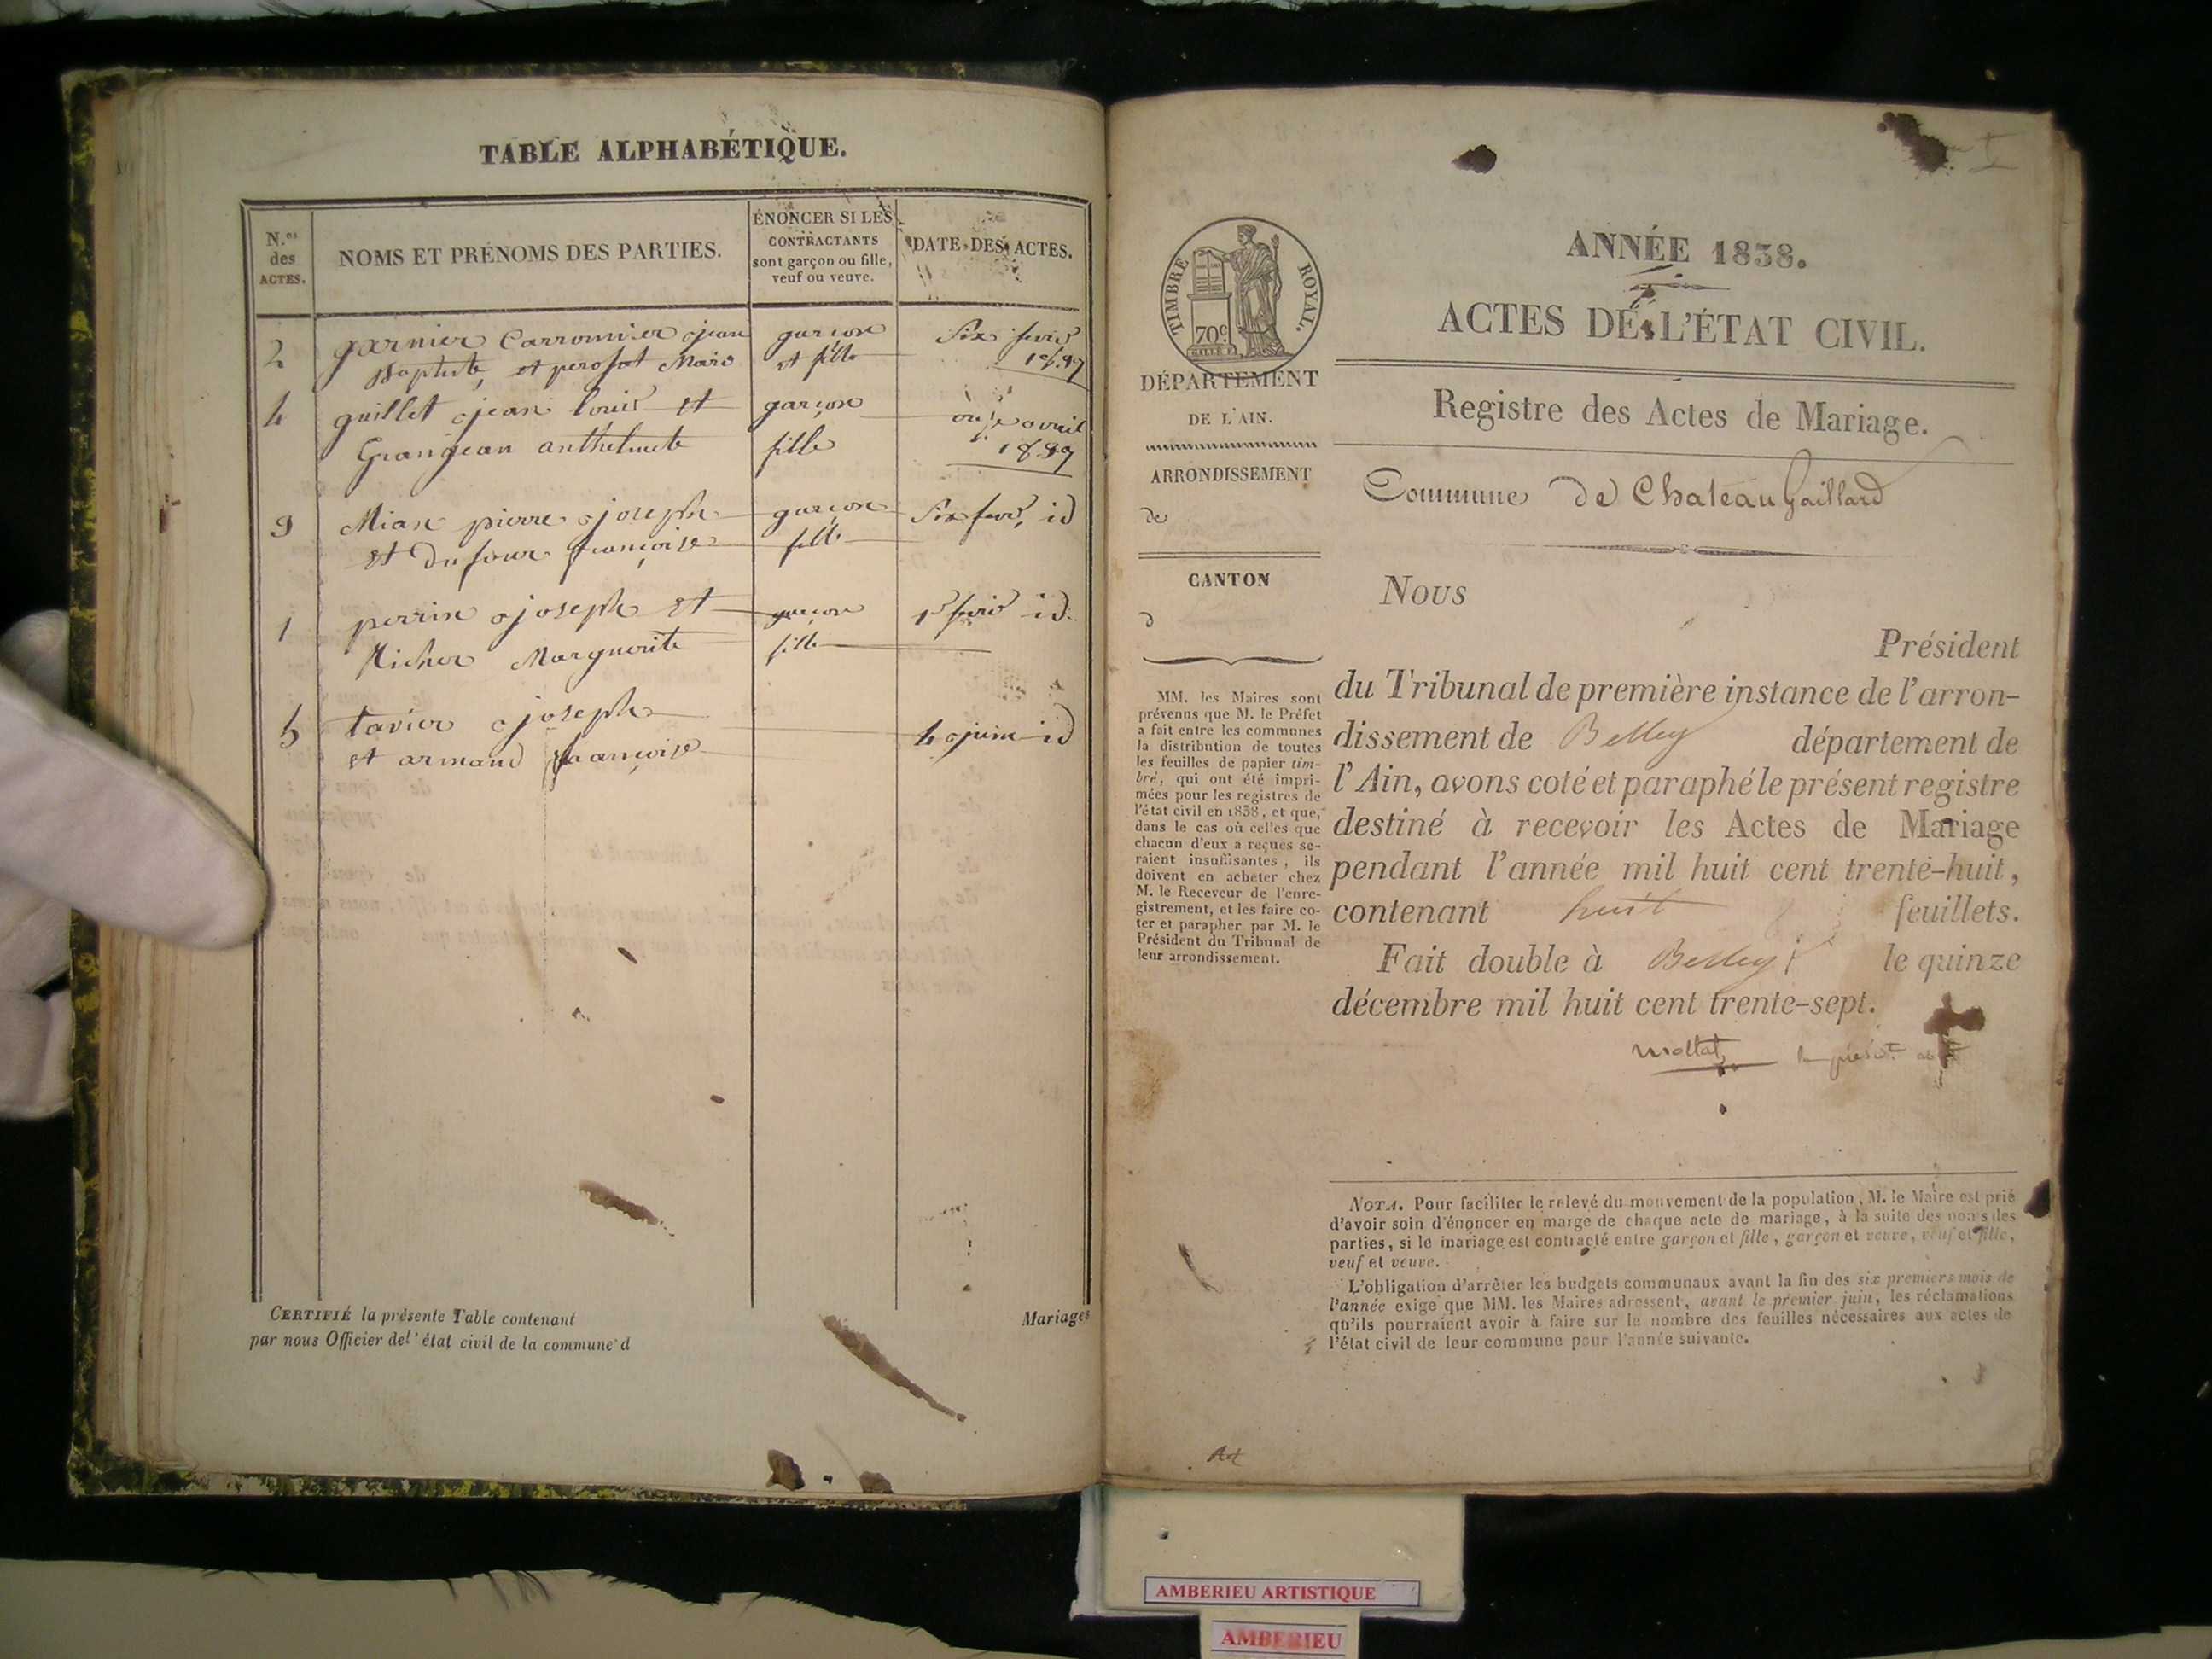 TABLE ALPHABÉTIQUE.
N.os des ACTES.
NOMS ET PRÉNOMS DES PARTIES.
ÉNONCER SI LES CONTRACTANTS sont garçon ou fille, veuf ou veuve.
DATE DES ACTES.
2 garnier Carronnier jean garçon Six
Baptiste, et et fille
4 guillet jean louis et garçon onze avril
Grangean anthelmette fille
3 Mian pierre joseph garçon Six id
et Dufour françoise fille
1 perrin joseph et garçon id.
Richer Marguerite fille
5 tavier joseph 4 juin id
et armand françoise
CERTIFIÉ la présente Table contenant Mariages
par nous Officier del'état civil de la commune d
TIMBRE ROYAL.
70c
ANNÉE 1838.
ACTES DE L'ÉTAT CIVIL.
DÉPARTEMENT
DE L'AIN.
ARRONDISSEMENT
de
CANTON
d
MM. les Maires sont
prévenus que M. le Préfet
a fait entre les communes
la distribution de toutes
les feuilles de papier tim-
bré, qui ont été impri-
mées pour les registres de
l'état civil en 1838, et que,
dans le cas où celles que
chacun d'eux a reçues se-
raient insuffisantes, ils
doivent en acheter chez
M. le Receveur de l'enre-
gistrement, et les faire co-
ter et parapher par M. le
Président du Tribunal de
leur arrondissement.
Registre des Actes de Mariage.
Commune de Chateau Gaillard
Nous
Président
du Tribunal de première instance de l'arron-
dissement de Belley département de
l'Ain, avons coté et paraphé le présent registre
destiné à recevoir les Actes de Mariage
pendant l'année mil huit cent trente-huit,
contenant huit feuillets.
Fait double à Belley le quinze
décembre mil huit cent trente-sept.
NOTA. Pour faciliter le relevé du mouvement de la population, M. le Maire est prié
d'avoir soin d'énoncer en marge de chaque acte de mariage, à la suite des noms des
parties, si le mariage est contracté entre garçon et fille, garçon et veuve, veuf et fille,
veuf et veuve.
L'obligation d'arrêter les budgets communaux avant la fin des six premiers mois de
l'année exige que MM. les Maires adressent, avant le premier juin, les réclamations
qu'ils pourraient avoir à faire sur le nombre des feuilles nécessaires aux actes de
l'état civil de leur commune pour l'année suivante.
AMBERIEU ARTISTIQUE
AMBERIEU